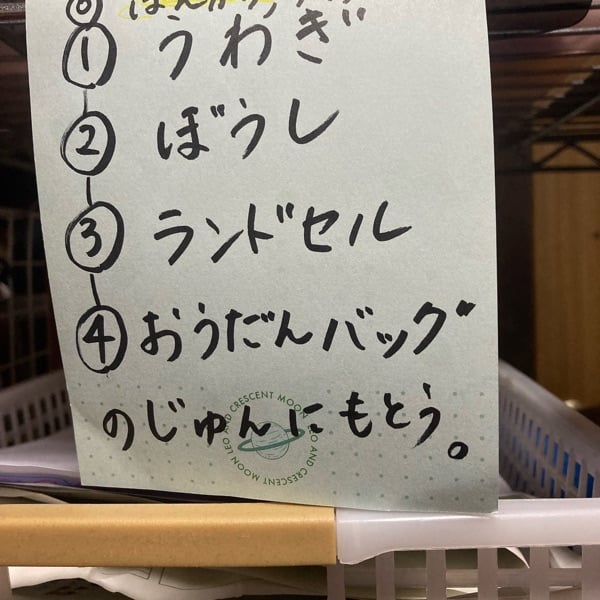 ① うわぎ
② ぼうし
③ ランドセル
④ おうだんバッグ
のじゅんにもとう。
LEO AND CRESCENT MOON LEO AND CRESCENT MOON